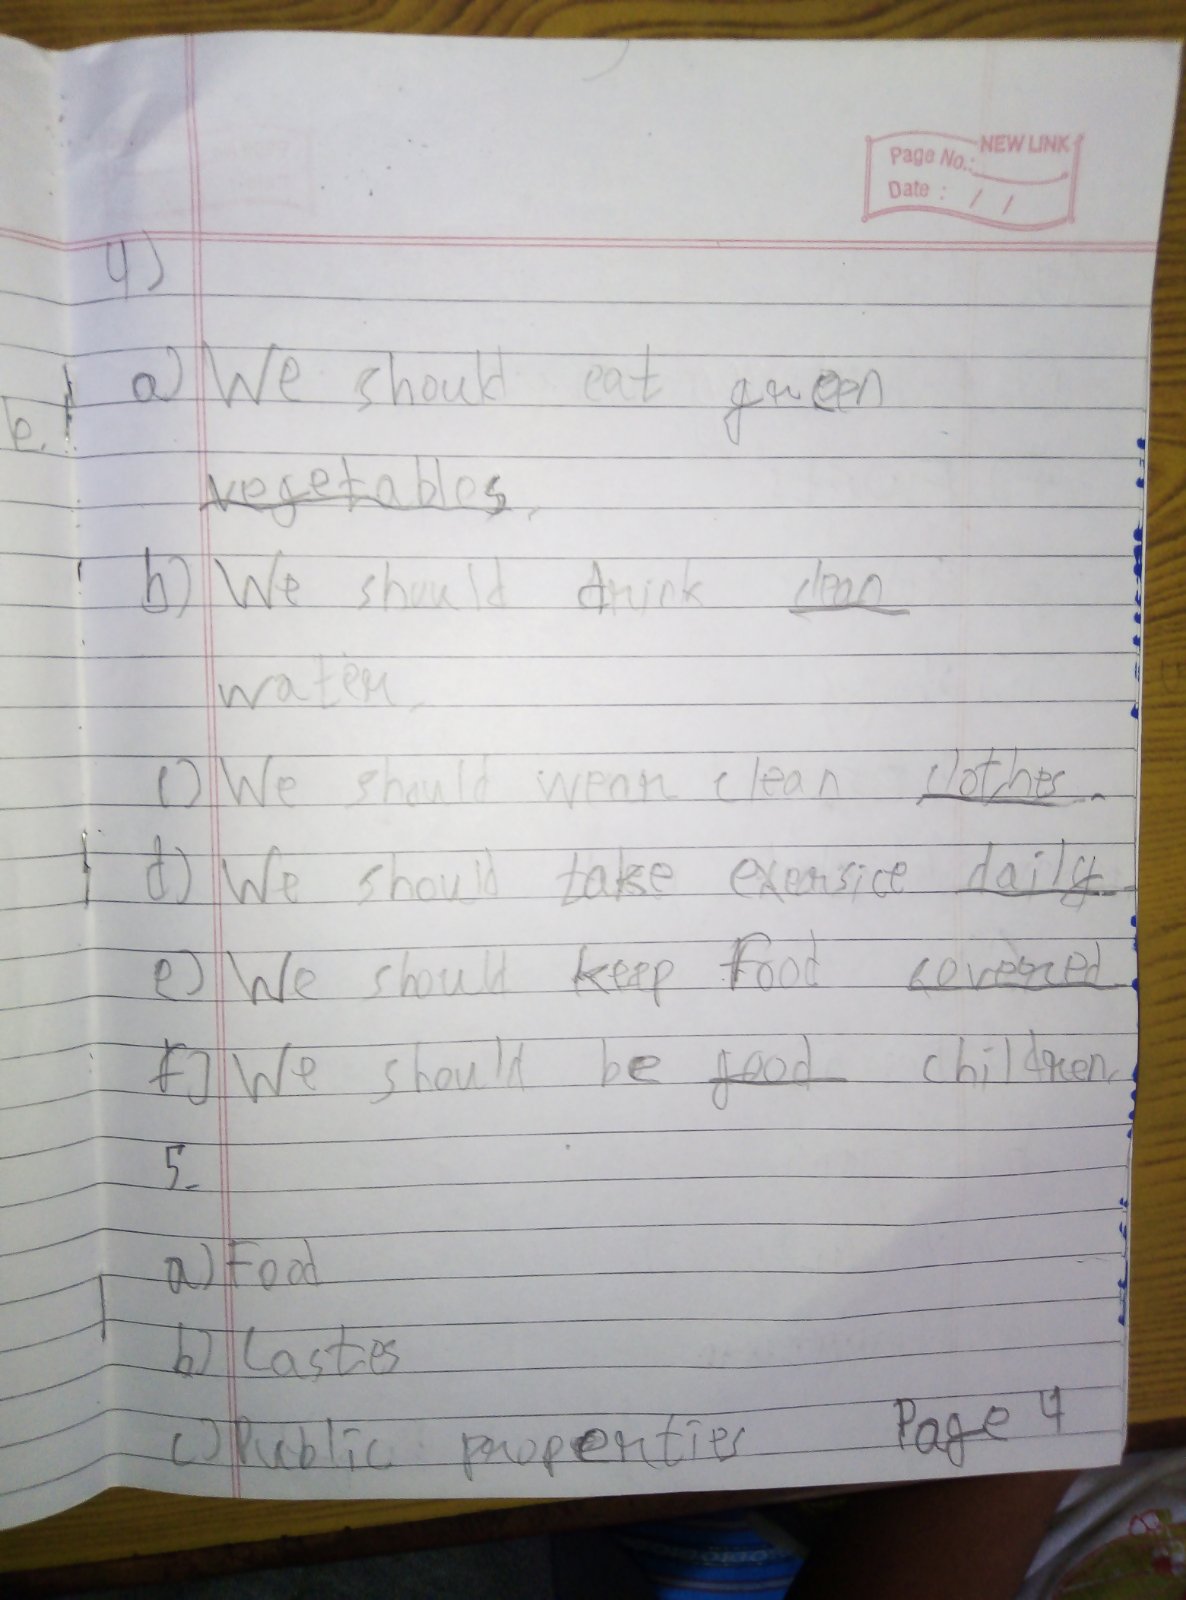 NEW LINK
Page No.:
Date : / /
4)
a) We should eat green
vegetables.
b) We should drink clean
water.
c) We should wear clean clothes.
d) We should take exersice daily
e) We should keep Food covered
f) We should be good children.
5.
a) Food
b) Casties
c) Public properties
Page 4